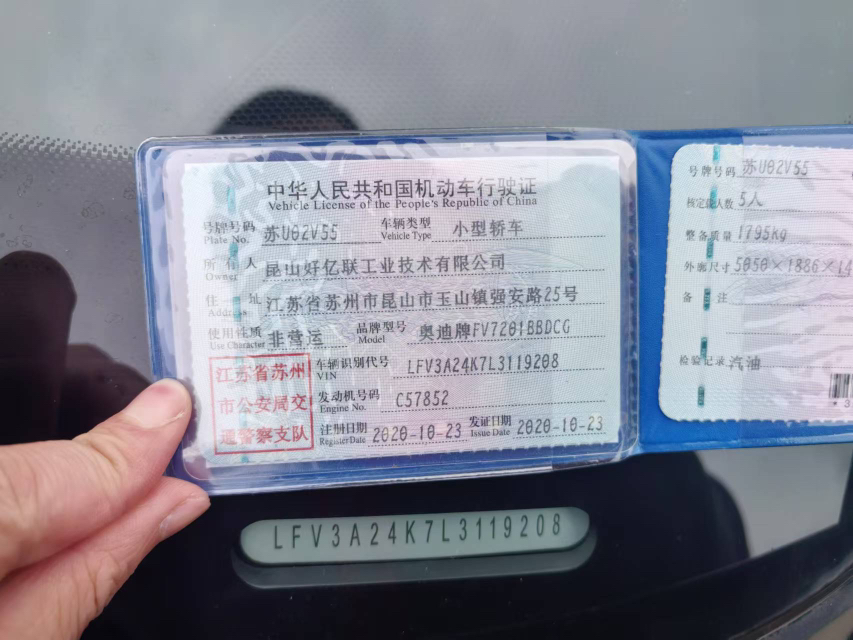 中华人民共和国机动车行驶证
Vehicle License of the People's Republic of China
号牌号码 苏U02V55 车辆类型 小型轿车
Plate No. Vehicle Type
所有人 昆山好亿联工业技术有限公司
Owner
住址 江苏省苏州市昆山市玉山镇强安路25号
Address
使用性质 非营运 品牌型号 奥迪牌FV7201BBDCG
Use Character Model
江苏省苏州
市公安局交
通警察支队
车辆识别代号 LFV3A24K7L3119208
VIN
发动机号码 C57852
Engine No.
注册日期 2020-10-23 发证日期 2020-10-23
Register Date Issue Date
号牌号码 苏U02V55
核定载人数 5人
整备质量 1795kg
外廓尺寸 5050×1886×14
备注
检验记录 汽油
LFV3A24K7L3119208